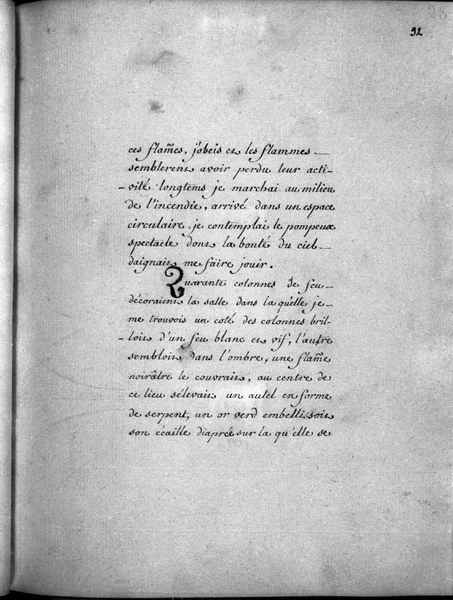 32
ces flam̃es, j'obéis et les flammes
semblerent avoir perdu leur acti-
-vité longtems je marchai au milieu
de l'incendie, arrivé dans un espace
circulaire je contemplai le pompeux
spectacle dont la bonté du ciel
daignait me faire jouir.
Quarante colonnes de feu
décoraient la salle dans la quelle je
me trouvois un coté des colonnes bril-
-loit d'un feu blanc et vif, l'autre
sembloit dans l'ombre, une flam̃e
noirâtre le couvrait, au centre de
ce lieu s'élevait un autel en forme
de serpent, un or verd embellissoit
son écaille diaprée sur la qu'elle se